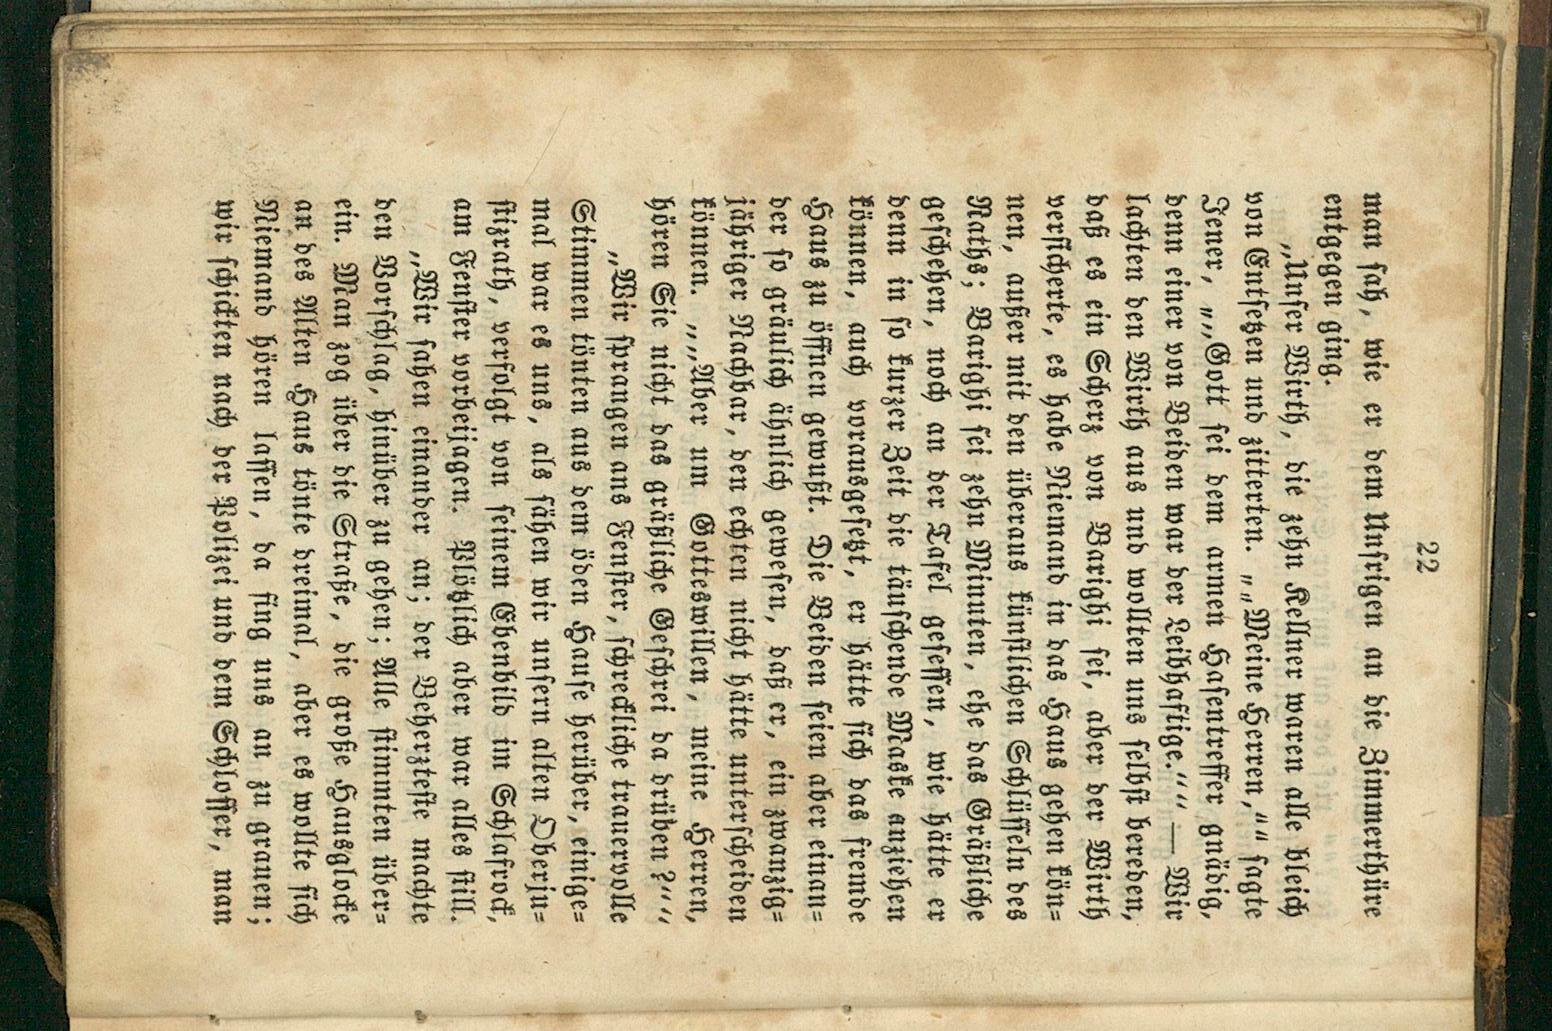 22
man ſah, wie er dem Unſrigen an die Zimmerthüre
entgegen ging.
„Unſer Wirth, die zehn Kellner waren alle bleich
von Entſetzen und zitterten. „„Meine Herren,““ ſagte
Jener, „„Gott ſei dem armen Haſentreffer gnädig,
denn einer von Beiden war der Leibhaftige.““ — Wir
lachten den Wirth aus und wollten uns ſelbſt bereden,
daß es ein Scherz von Barighi ſei, aber der Wirth
verſicherte, es habe Niemand in das Haus gehen kön=
nen, außer mit den überaus künſtlichen Schlüſſeln des
Raths; Barighi ſei zehn Minuten, ehe das Gräßliche
geſchehen, noch an der Tafel geſeſſen, wie hätte er
denn in ſo kurzer Zeit die täuſchende Maske anziehen
können, auch vorausgeſetzt, er hätte ſich das fremde
Haus zu öffnen gewußt. Die Beiden ſeien aber einan=
der ſo gräulich ähnlich geweſen, daß er, ein zwanzig=
jähriger Nachbar, den echten nicht hätte unterſcheiden
können. „„Aber um Gotteswillen, meine Herren,
hören Sie nicht das gräßliche Geſchrei da drüben?““
„Wir ſprangen ans Fenſter, ſchreckliche trauervolle
Stimmen tönten aus dem öden Hauſe herüber, einige=
mal war es uns, als ſähen wir unſern alten Oberju=
ſtizrath, verfolgt von ſeinem Ebenbild im Schlafrock,
am Fenſter vorbeijagen. Plötzlich aber war alles ſtill.
„Wir ſahen einander an; der Beherzteſte machte
den Vorſchlag, hinüber zu gehen; Alle ſtimmten über=
ein. Man zog über die Straße, die große Hausglocke
an des Alten Haus tönte dreimal, aber es wollte ſich
Niemand hören laſſen, da fing uns an zu grauen;
wir ſchickten nach der Polizei und dem Schloſſer, man